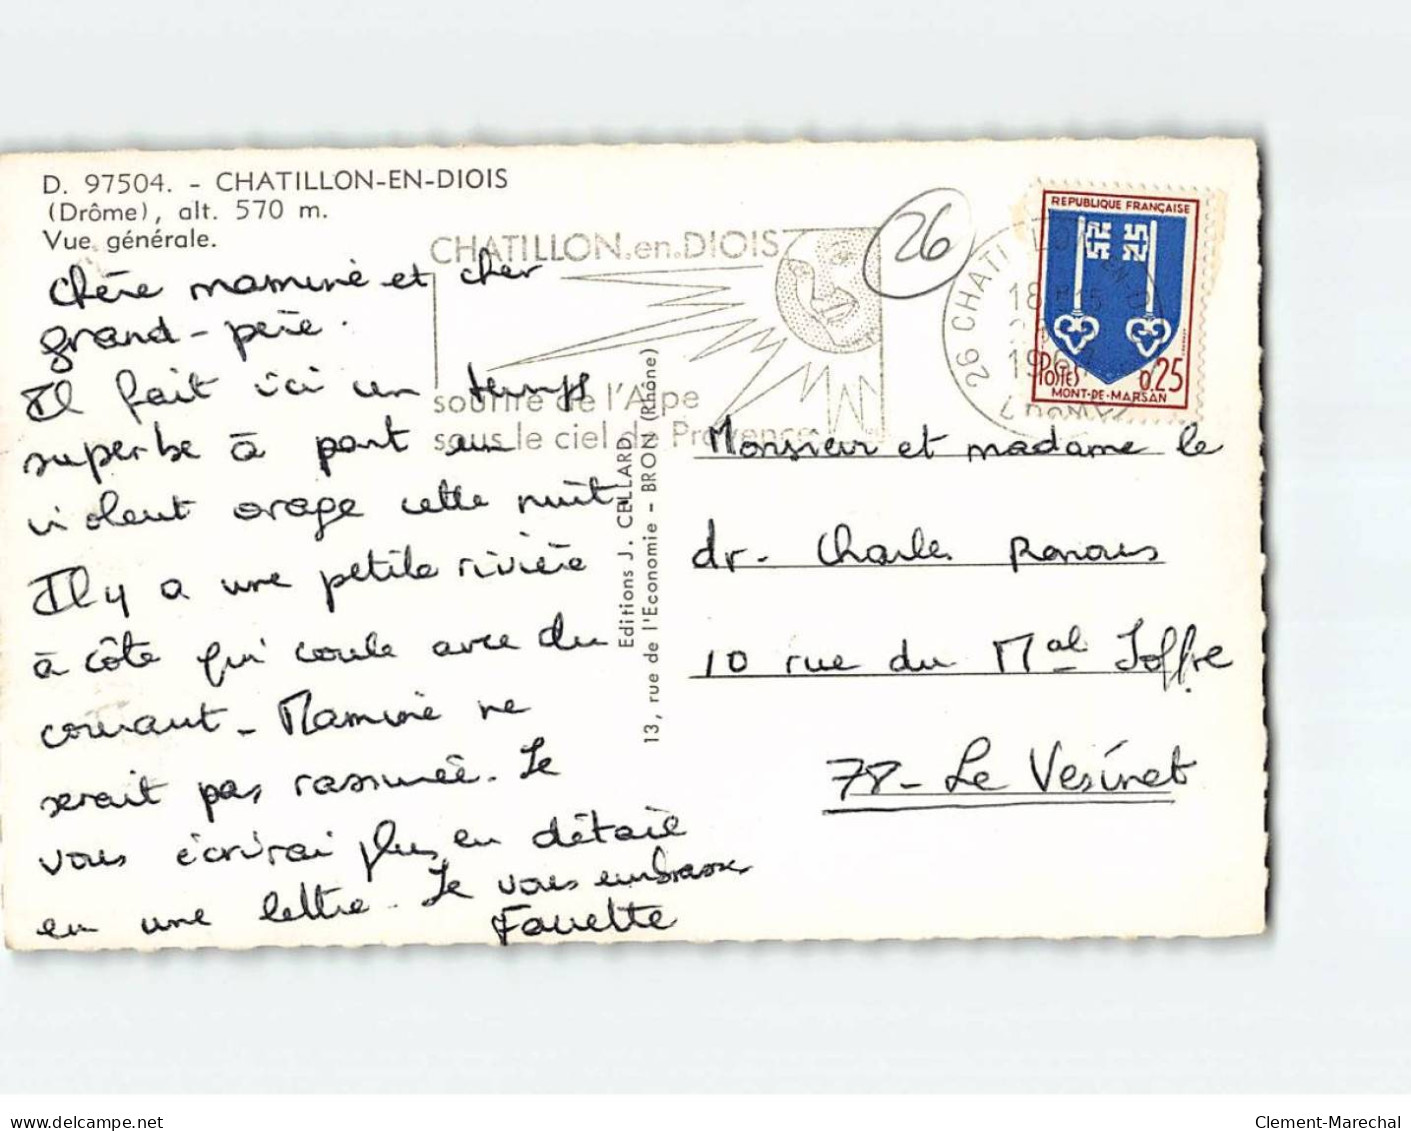 D. 97504. - CHATILLON-EN-DIOIS
(Drôme), alt. 570 m.
Vue générale.
Chère mamine et cher
grand-père.
Il fait ici un temps
superbe à part un
violent orage cette nuit.
Il y a une petite rivière
à côté qui coule avec du
courant - Mamine ne
serait pas rassurée. Je
vous écrirai plus en détail
en une lettre. Je vous embrasse
CHATILLON.en.DIOIS
sourire de l'Alpe
sous le ciel de Provence
26
26 CHATILLON-EN-DI
18H15
196
DROME
REPUBLIQUE FRANÇAISE
POSTES 0,25
MONT-DE-MARSAN
Editions J. CELLARD
13, rue de l'Economie - BRON (Rhône)
Monsieur et madame le
dr. Charles
10 rue du Mal Joffre
78 - Le Vésinet
delcampe.net
Clement-Marechal